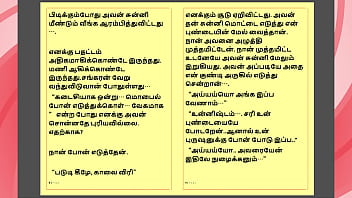 பிடிக்கும்போது அவன் சுன்னி
மீண்டும் வீங்க ஆரம்பித்துவிட்டது
….
எனக்கு பதட்டம்
அதிகமாகிக்கொண்டே இருந்தது.
மணி ஆகிக்கொண்டே
இருந்தது.சங்கரன் வேறு
வந்துவிடுவான் போதுள்ளது…
“கடைசியாக ஒன்று… மொபைல்
போன் எடுத்துக்கொள்… வேகமாக
” என்ற போது எனக்கு அவன்
சொன்னதே புரியவில்லை.
எதற்காக?
நான் போன் எடுத்தேன்.
“படுடி கீழே, காலை விரி”
எனக்கும் சூடு ஏறிவிட்டது. அவன்
தன் சுன்னி மொட்டை எடுத்து என்
புண்டையின் மேல் வைத்தான்.
நான் அவனை அழுத்தி
முத்தமிட்டேன். நான் முத்தமிட்ட
உடனேயே அவன் சுன்னி மேலும்
இறுகியது. அவன் அப்படியே அதை
என் குண்டி அருகில் எடுத்து
சென்றான்…
“அய்யய்யோ அங்க இப்ப
வேணாம்…”
“உன்னிஷ்டம்… சரி உன்
புண்டையையே
போடறேன்..ஆனால் உன்
புருஷனுக்கு போன் போடு இப்ப..”
“அய்யய்யோ.. அவரையேன்
இதிலே நுழைக்கனும்…”